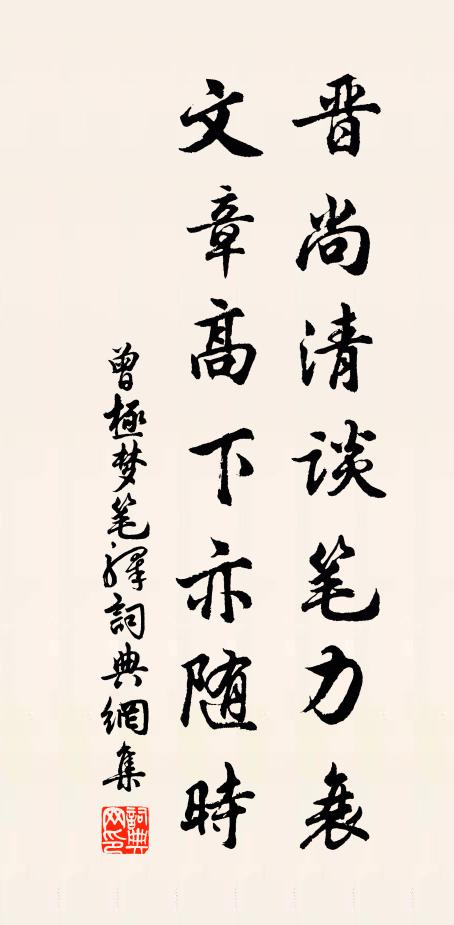 晋尚清谈笔力衰
文章高下亦随時
曾極梦笔驛詞典網集
詞典网印